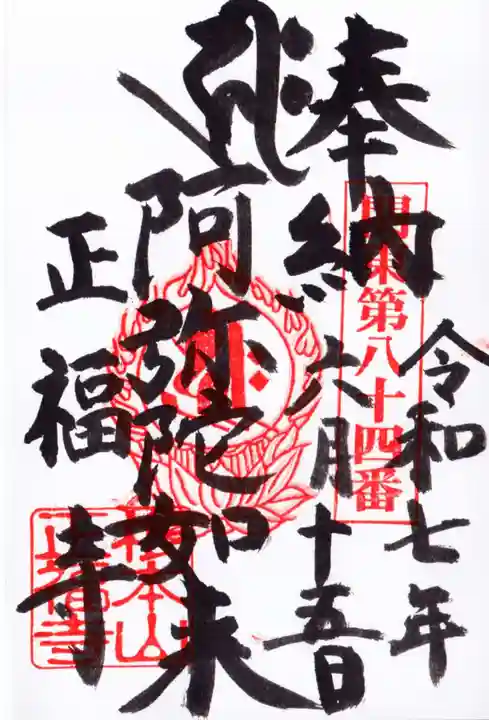 奉納
令和七年
六月十五日
関東第八十四番
阿弥陀如来
正福寺
正福寺